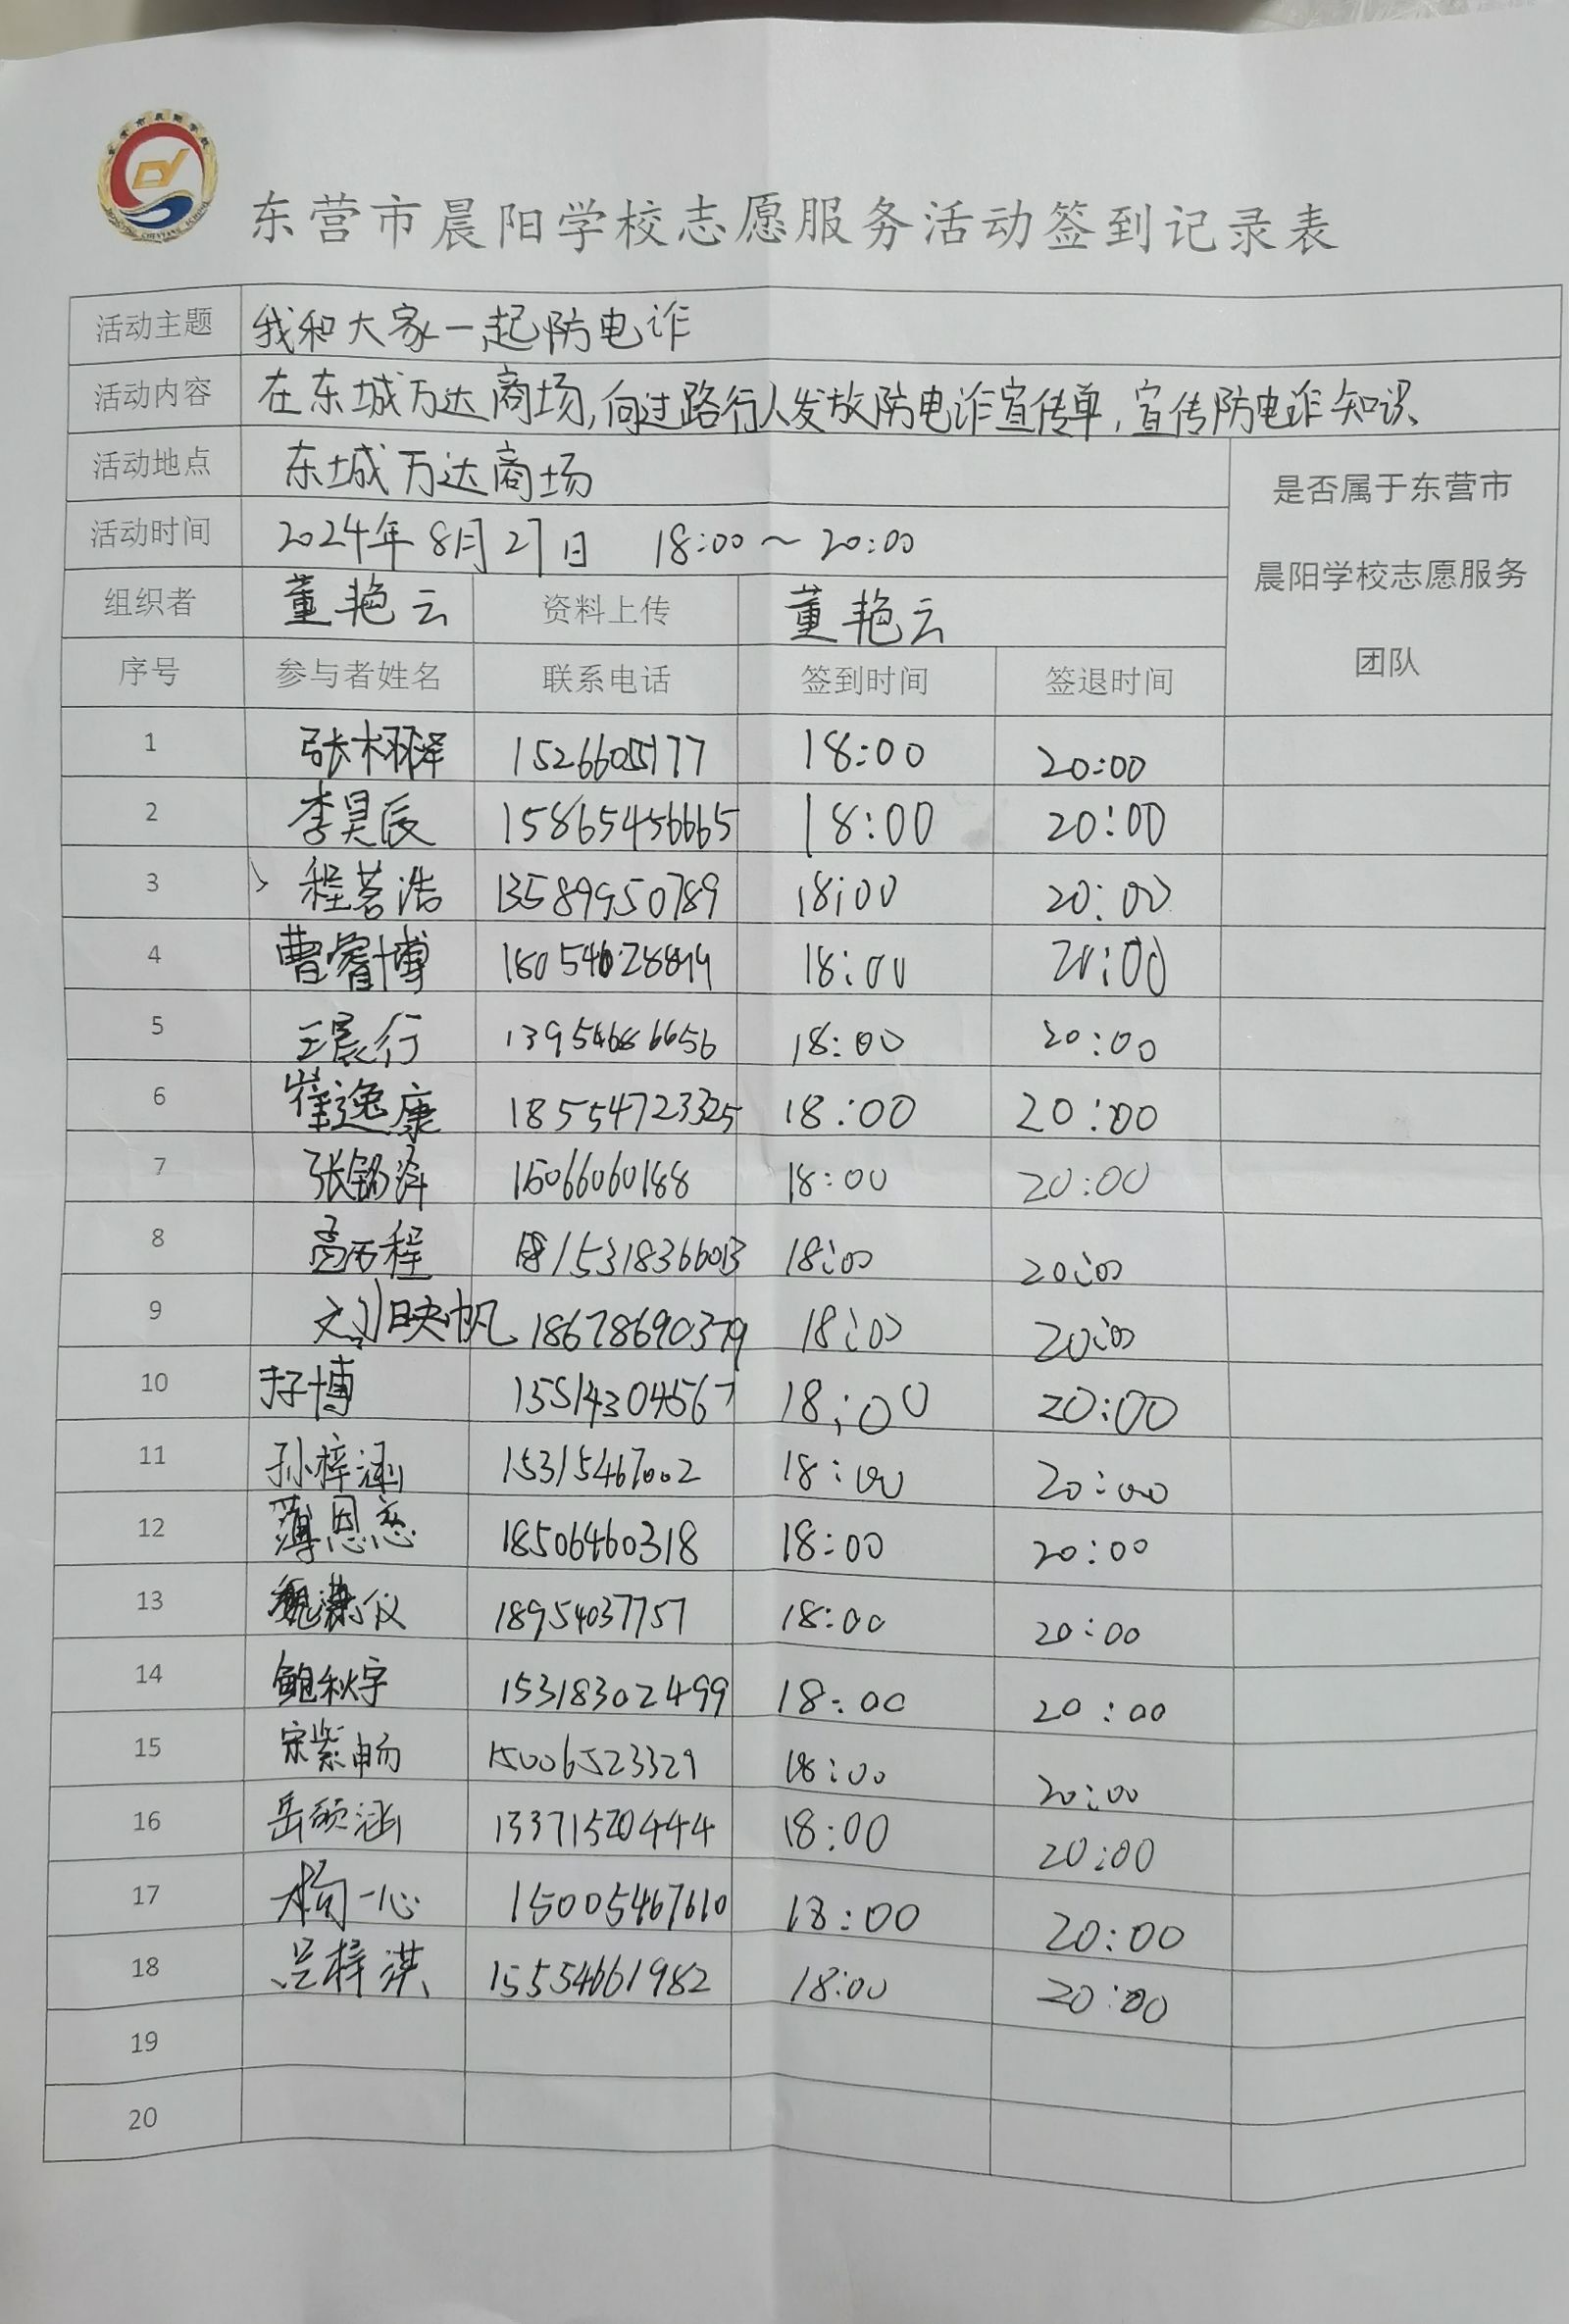 东营市晨阳学校志愿服务活动签到记录表
活动主题 我和大家一起防电诈
活动内容 在东城万达商场,向过路行人发放防电诈宣传单,宣传防电诈知识
活动地点 东城万达商场
是否属于东营市
晨阳学校志愿服务
团队
活动时间 2024年8月27日 18:00~20:00
组织者 董艳云 资料上传 董艳云
序号 参与者姓名 联系电话 签到时间 签退时间
1 张栩泽 18:00 20:00
2 李昊辰 15865456665 18:00 20:00
3 程茗浩 13589950789 18:00 20:00
4 曹睿博 18:00 20:00
5 王晨行 13954686656 18:00 20:00
6 崔逸康 18554723325 18:00 20:00
7 张铭泽 18:00 20:00
8 程 18:00 20:00
9 刘映帆 18678690379 18:00 20:00
10 博 18:00 20:00
11 孙梓涵 15315467002 18:00 20:00
12 薄恩恋 18506460318 18:00 20:00
13 仪 18954037757 18:00 20:00
14 鲍秋宇 15318302499 18:00 20:00
15 宋紫畅 15006523329 18:00 20:00
16 岳硕涵 13371520444 18:00 20:00
17 杨一心 15005467610 18:00 20:00
18 吕梓淇 15554661982 18:00 20:00
19
20